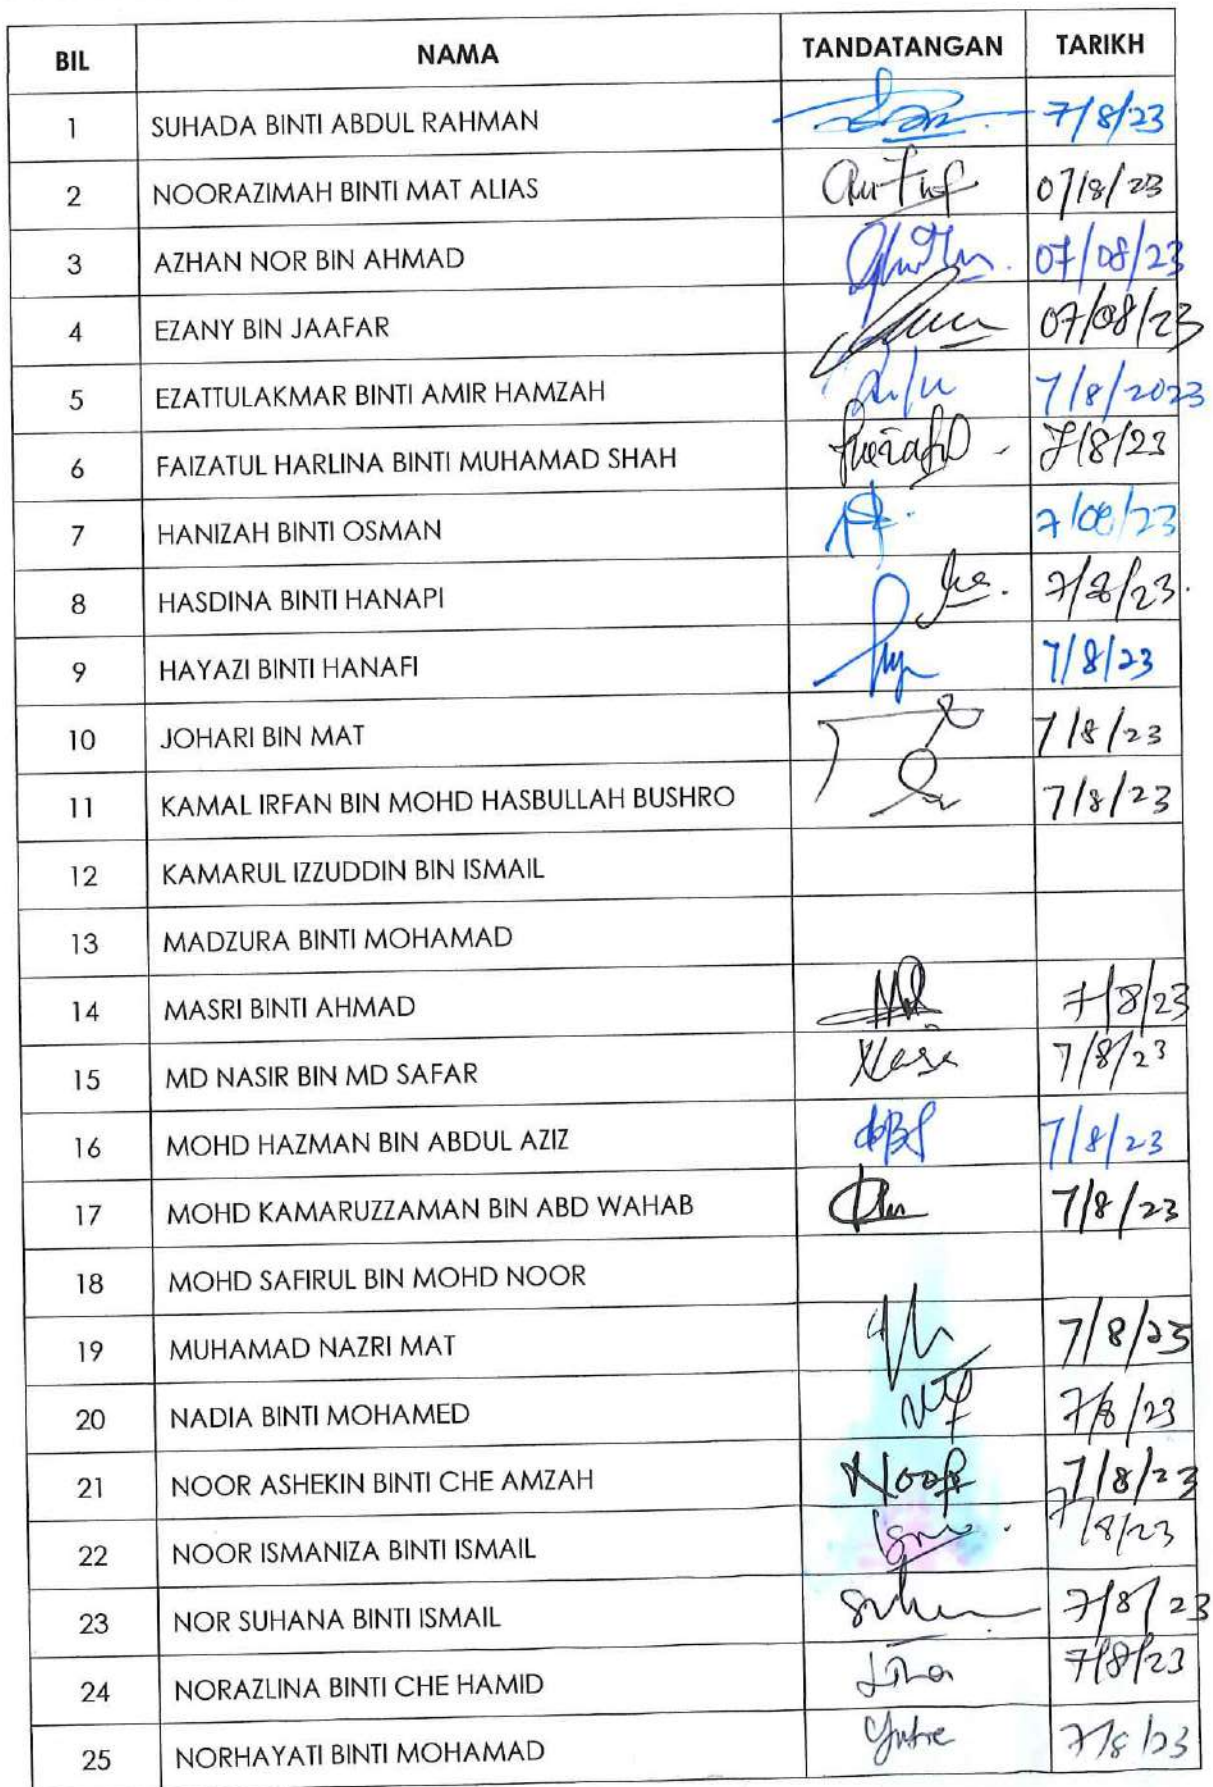 BIL NAMA TANDATANGAN TARIKH
1 SUHADA BINTI ABDUL RAHMAN 7/8/23
2 NOORAZIMAH BINTI MAT ALIAS 07/8/23
3 AZHAN NOR BIN AHMAD 07/08/23
4 EZANY BIN JAAFAR 07/08/23
5 EZATTULAKMAR BINTI AMIR HAMZAH 7/8/2023
6 FAIZATUL HARLINA BINTI MUHAMAD SHAH 7/8/23
7 HANIZAH BINTI OSMAN 7/08/23
8 HASDINA BINTI HANAPI 7/8/23.
9 HAYAZI BINTI HANAFI 7/8/23
10 JOHARI BIN MAT 7/8/23
11 KAMAL IRFAN BIN MOHD HASBULLAH BUSHRO 7/8/23
12 KAMARUL IZZUDDIN BIN ISMAIL
13 MADZURA BINTI MOHAMAD
14 MASRI BINTI AHMAD 7/8/23
15 MD NASIR BIN MD SAFAR 7/8/23
16 MOHD HAZMAN BIN ABDUL AZIZ 7/8/23
17 MOHD KAMARUZZAMAN BIN ABD WAHAB 7/8/23
18 MOHD SAFIRUL BIN MOHD NOOR
19 MUHAMAD NAZRI MAT 7/8/23
20 NADIA BINTI MOHAMED 7/8/23
21 NOOR ASHEKIN BINTI CHE AMZAH 7/8/23
22 NOOR ISMANIZA BINTI ISMAIL 7/8/23
23 NOR SUHANA BINTI ISMAIL 7/8/23
24 NORAZLINA BINTI CHE HAMID 7/8/23
25 NORHAYATI BINTI MOHAMAD 7/8/23